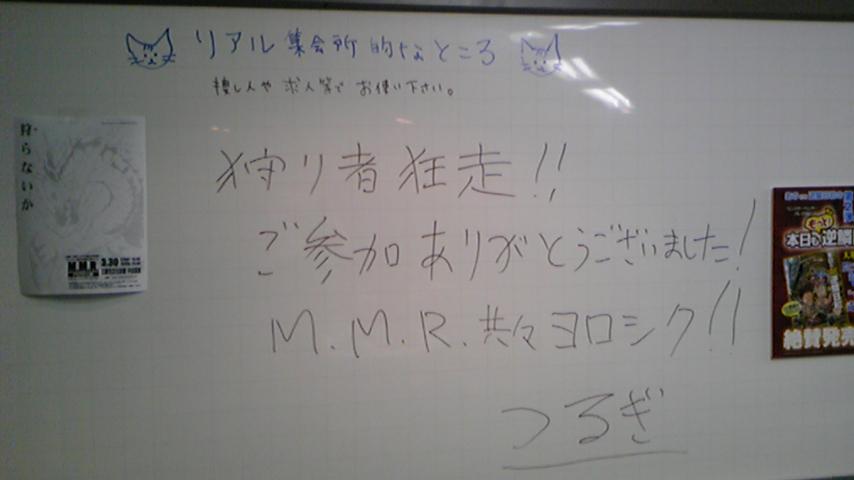 リアル集会所的なところ
捜し人や求人等でお使い下さい。
狩り者狂走!!
ご参加ありがとうございました!
M.M.R.共々ヨロシク!!
つるぎ
狩らないか
M.M.R
3.30
本日も逆鱗
絶賛発売